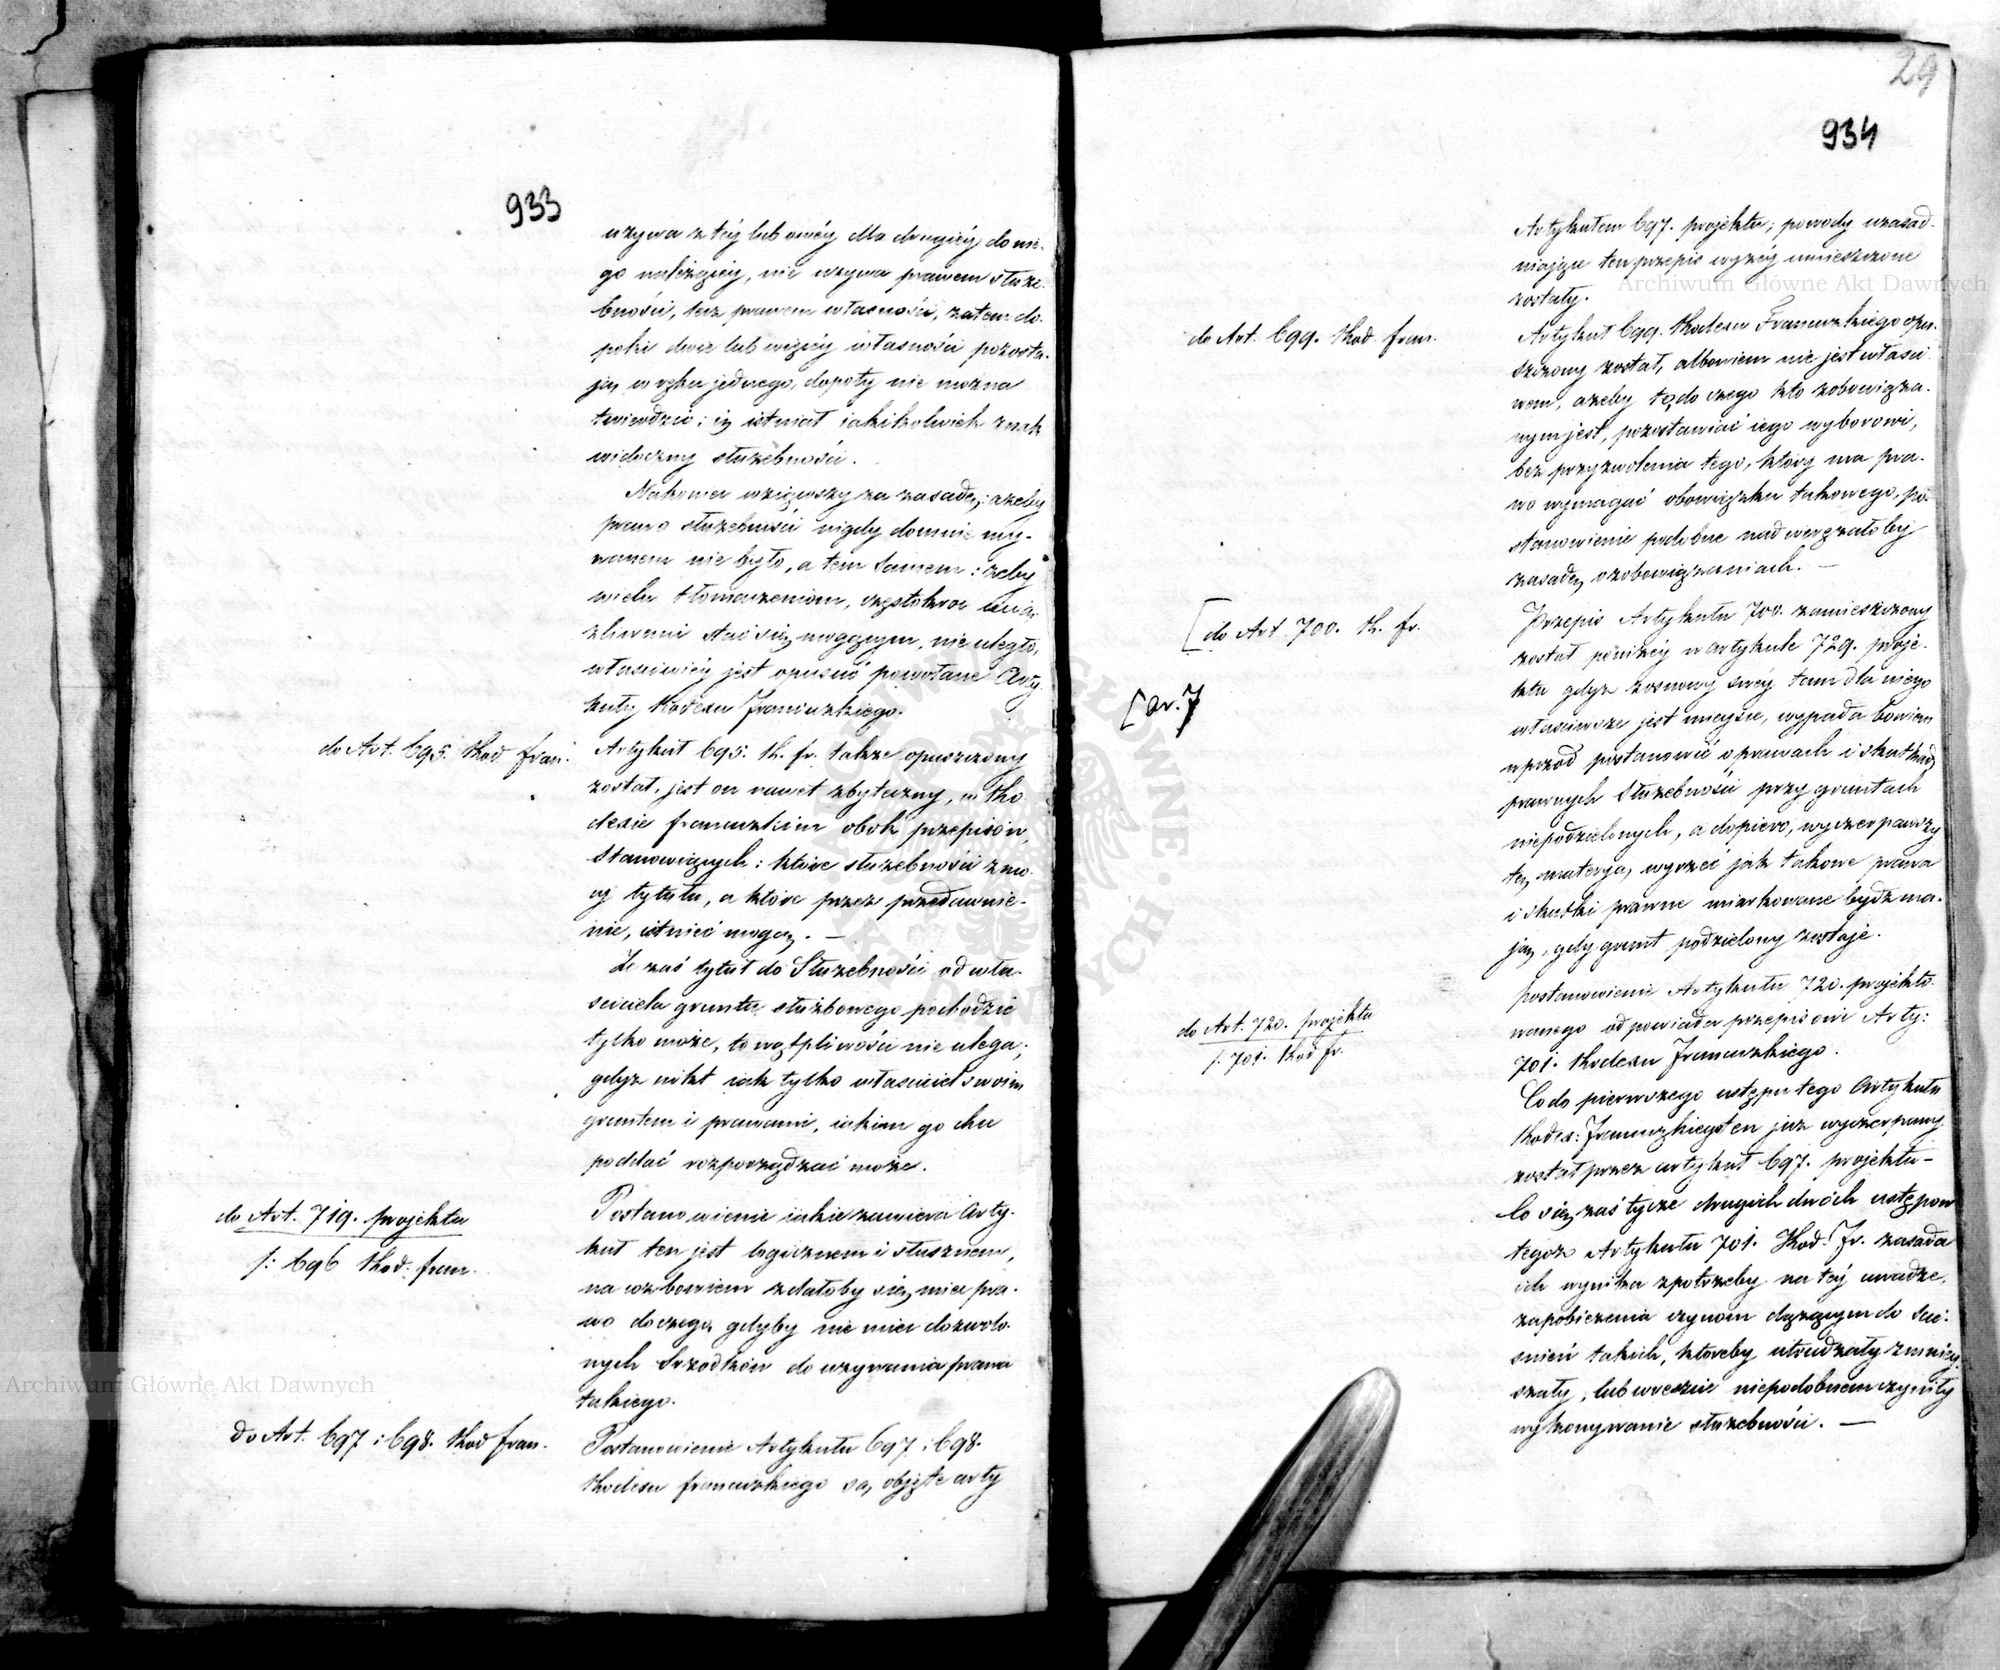 933
używa z téj lub owéj dla drugiéj do nie-
go należącéj, nie używa prawem służe-
bności, lecz prawem własności, zatem do-
póki dwie lub więcéj własności pozosta-
ją w ręku jednego, dopóty nie można
twierdzić; iż istniał iakikolwiek znak
widoczny służebności.
Nakoniec wziąwszy za zasadę; ażeby
prawo służebności nigdy domnie my-
wanem nie było, a tem samem: żeby
wielu tłomaczeniom, częstokroć
stać się mogącym, nie uległo,
właściwiéj jest opuścić powołane Arty-
kuły Kodexu Francuzkiego.
do Art. 695. Kod fran.
Artykuł 695. K. fr. także opuszczony
został, jest on nawet zbyteczny, w Ko-
dexie francuzkim obok przepisów,
stanowiących: które służebności z mo-
cy tytułu, a które przez przedawnie-
nie, istnieć mogą. —
Że zaś tytuł do Służebności od wła-
ściciela gruntu służbowego pochodzić
tylko może, to wątpliwości nie ulega;
gdyż nikt iak tylko właściciel swoim
gruntem i prawami, iakim go chce
poddać rozporządzać może.
do Art. 719. projektu
/: 696 Kod. fran.
Postanowienie iakie zawiera Arty-
kuł ten jest logicznem i słusznem,
na coż bowiem zdałoby się mieć pra-
wo do czego, gdyby nie mieć dozwolo-
nych środków do używania prawa
takiego.
do Art. 697 i 698. Kod fran.
Postanowienie Artykułu 697 i 698.
Kodexu francuzkiego są objęte arty
29
934
Artykułem 697. projektu; powody uzasad-
niające ten przepis wyżéj umieszczone
zostały.
do Art. 699. Kod. fran.
Artykuł 699. Kodexu Francuzkiego opu-
szczony został, albowiem nie jest właści-
wem, ażeby to, do czego kto zobowiąza-
nym jest, pozostawiać iego wyborowi,
bez przyzwolenia tego, który ma pra-
wo wymagać obowiązku takowego, po-
stanowienie podobne nadwerężałoby
zasadę o zobowiązaniach. —
[do Art. 700. K. fr.
Przepis Artykułu 700. zamieszczony
został poniżéj w artykule 729. proje-
ktu gdyż z osnowy swéj tam dla niego
właściwsze jest miejsce, wypada bowiem
wprzód postanowić o prawach i skutkach
prawnych Służebności przy gruntach
niepodzielonych, a dopiero, wyczerpawszy
tę materyą, wyrzec jak takowe prawa
i skutki prawne miarkowane bydź ma-
ją, gdy grunt podzielony zostaje.
[ar. 7
do Art. 720. projektu
/: 701. Kod fr.
Postanowienie Artykułu 720. projekto-
wanego odpowiada przepisowi Arty:
701. Kodexu Francuzkiego.
Co do pierwszego ustępu tego Artykułu
Kodex: Francuzkiego ten już wyczerpany
został przez artykuł 697. projektu —
Co się zaś tycze drugich dwóch ustępów
tegoż Artykułu 701. Kod. Fr. zasada
ich wynika z potrzeby na téj uwadze,
zapobieżenia czynom dążącym do ście-
śnień takich, któreby utrudzały zmniéj-
szały, lub wreszcie niepodobnem czyniły
wykonywanie służebności. —
Archiwum Główne Akt Dawnych
Archiwum Główne Akt Dawnych